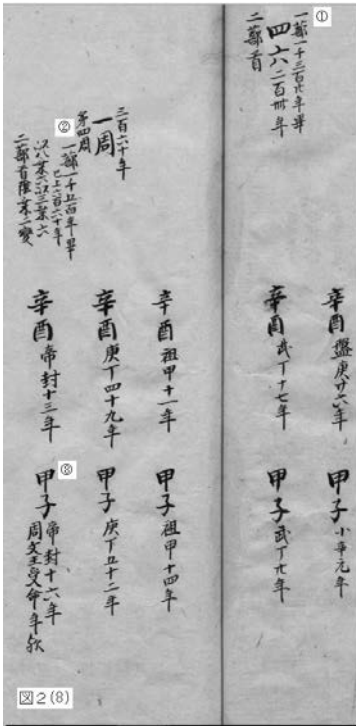 ①
一蔀一千三百廿年畢
四六二百卌年
二蔀首
辛酉盤庚廿六年
甲子小辛元年
辛酉武丁十七年
甲子武丁廿年
三百六十年
一周
第四周
②
一蔀一千五百年畢
已上六百六十年
以八業六以三業六
二蔀首陰爻二變
辛酉祖甲十一年
甲子祖甲十四年
辛酉庚丁四十九年
甲子庚丁五十二年
辛酉帝封十三年
③
甲子帝封十六年
周文王受命年歟
図2(8)